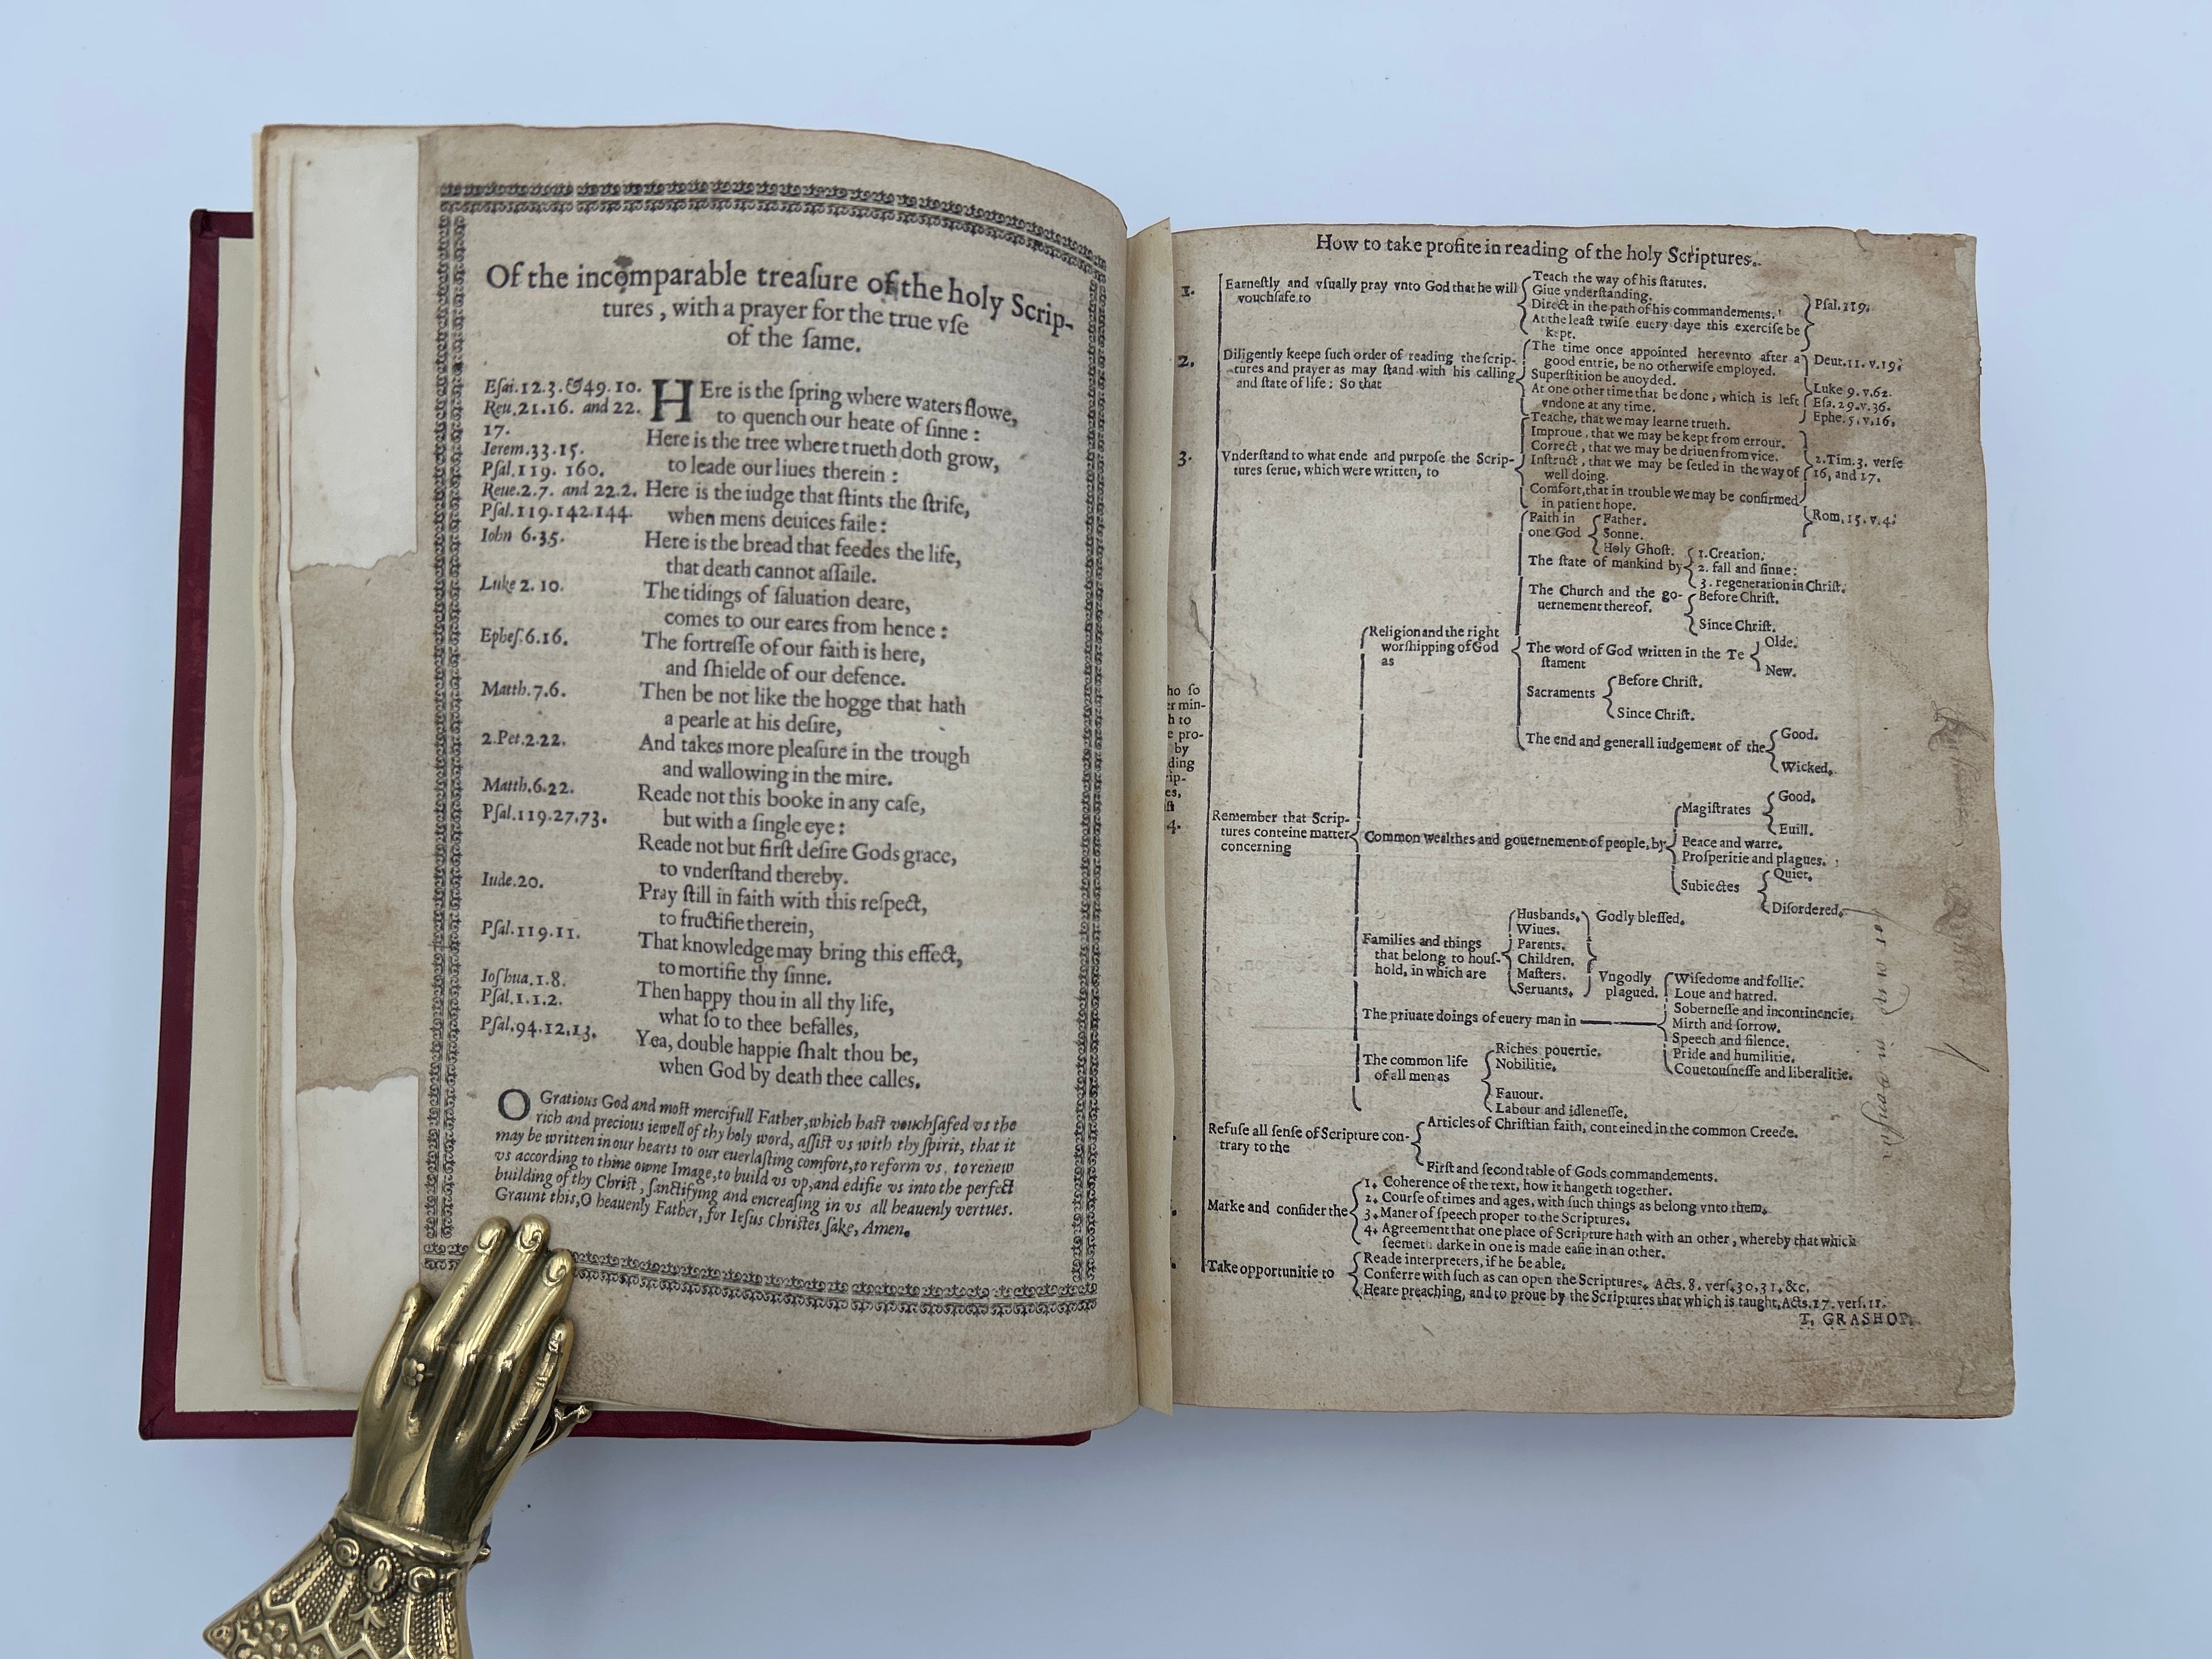 Of the incomparable treaſure of the holy Scrip-
tures, with a prayer for the true vſe
of the ſame.
Eſai.12.3.&49.10.
Reu.21.16. and 22.
17.
Ierem.33.15.
Pſal.119. 160.
Reue.2.7. and 22.2.
Pſal.119.142.144.
Iohn 6.35.
Luke 2. 10.
Epheſ.6.16.
Matth.7.6.
2.Pet.2.22.
Matth.6.22.
Pſal.119.27,73.
Iude.20.
Pſal.119.11.
Ioſhua.1.8.
Pſal.1.1.2.
Pſal.94.12,13.
HEre is the ſpring where waters flowe,
to quench our heate of ſinne:
Here is the tree where trueth doth grow,
to leade our liues therein:
Here is the iudge that ſtints the ſtrife,
when mens deuices faile:
Here is the bread that feedes the life,
that death cannot aſſaile.
The tidings of ſaluation deare,
comes to our eares from hence:
The fortreſſe of our faith is here,
and ſhielde of our defence.
Then be not like the hogge that hath
a pearle at his deſire,
And takes more pleaſure in the trough
and wallowing in the mire.
Reade not this booke in any caſe,
but with a ſingle eye:
Reade not but firſt deſire Gods grace,
to vnderſtand thereby.
Pray ſtill in faith with this reſpect,
to fructifie therein,
That knowledge may bring this effect,
to mortifie thy ſinne.
Then happy thou in all thy life,
what ſo to thee befalles,
Yea, double happie ſhalt thou be,
when God by death thee calles.
O Gratious God and moſt mercifull Father, which haſt vouchſafed vs the
rich and precious iewell of thy holy word, aſſiſt vs with thy ſpirit, that it
may be written in our hearts to our euerlaſting comfort, to reform vs, to renew
vs according to thine owne Image, to build vs vp, and edifie vs into the perfect
building of thy Chriſt, ſanctifying and encreaſing in vs all heauenly vertues.
Graunt this, O heauenly Father, for Ieſus Chriſtes ſake, Amen.
How to take profite in reading of the holy Scriptures.
1.
Earneſtly and vſually pray vnto God that he will
vouchſafe to
Teach the way of his ſtatutes.
Giue vnderſtanding.
Direct in the path of his commandements.
Pſal.119.
At the leaſt twiſe euery daye this exerciſe be
kept.
2.
Diligently keepe ſuch order of reading the ſcrip-
tures and prayer as may ſtand with his calling
and ſtate of life: So that
The time once appointed herevnto after a
good entrie, be no otherwiſe employed.
Superſtition be auoyded.
At one other time that be done, which is left
vndone at any time.
Deut.11. v.19.
Luke 9. v.62.
Eſa.29.v.36.
Ephe.5.v.16.
3.
Vnderſtand to what ende and purpoſe the Scrip-
tures ſerue, which were written, to
Teache, that we may learne trueth.
Improue, that we may be kept from errour.
Correct, that we may be driuen from vice.
Inſtruct, that we may be ſetled in the way of
well doing.
Comfort, that in trouble we may be confirmed
in patient hope.
2.Tim.3. verſe
16, and 17.
Rom.15.v.4.
4.
Remember that Scrip-
tures conteine matter
concerning
Religion and the right
worſhipping of God
as
Faith in
one God
Father.
Sonne.
Holy Ghoſt.
The ſtate of mankind by
1. Creation.
2. fall and ſinne:
3. regeneration in Chriſt.
The Church and the go-
uernement thereof.
Before Chriſt.
Since Chriſt.
The word of God written in the Te
ſtament
Olde.
New.
Sacraments
Before Chriſt.
Since Chriſt.
The end and generall iudgement of the
Good.
Wicked.
Common wealthes and gouernement of people, by
Magiſtrates
Good.
Euill.
Peace and warre.
Proſperitie and plagues.
Subiectes
Quiet.
Diſordered.
Families and things
that belong to houſ-
hold, in which are
Husbands.
Wiues.
Parents.
Children.
Maſters.
Seruants.
Godly bleſſed.
Vngodly
plagued.
The priuate doings of euery man in
Wiſedome and follie.
Loue and hatred.
Soberneſſe and incontinencie.
Mirth and ſorrow.
Speech and ſilence.
Pride and humilitie.
Couetouſneſſe and liberalitie.
The common life
of all men as
Riches pouertie.
Nobilitie.
Fauour.
Labour and idleneſſe.
Refuſe all ſenſe of Scripture con-
trary to the
Articles of Chriſtian faith, conteined in the common Creede.
Firſt and ſecond table of Gods commandements.
Marke and conſider the
1. Coherence of the text, how it hangeth together.
2. Courſe of times and ages, with ſuch things as belong vnto them.
3. Maner of ſpeech proper to the Scriptures.
4. Agreement that one place of Scripture hath with an other, whereby that which
ſeemeth darke in one is made eaſie in an other.
Take opportunitie to
Reade interpreters, if he be able.
Conferre with ſuch as can open the Scriptures. Acts.8. verſ.30,31,&c.
Heare preaching, and to proue by the Scriptures that which is taught, Acts.17. verſ.11.
T. GRASHOP.